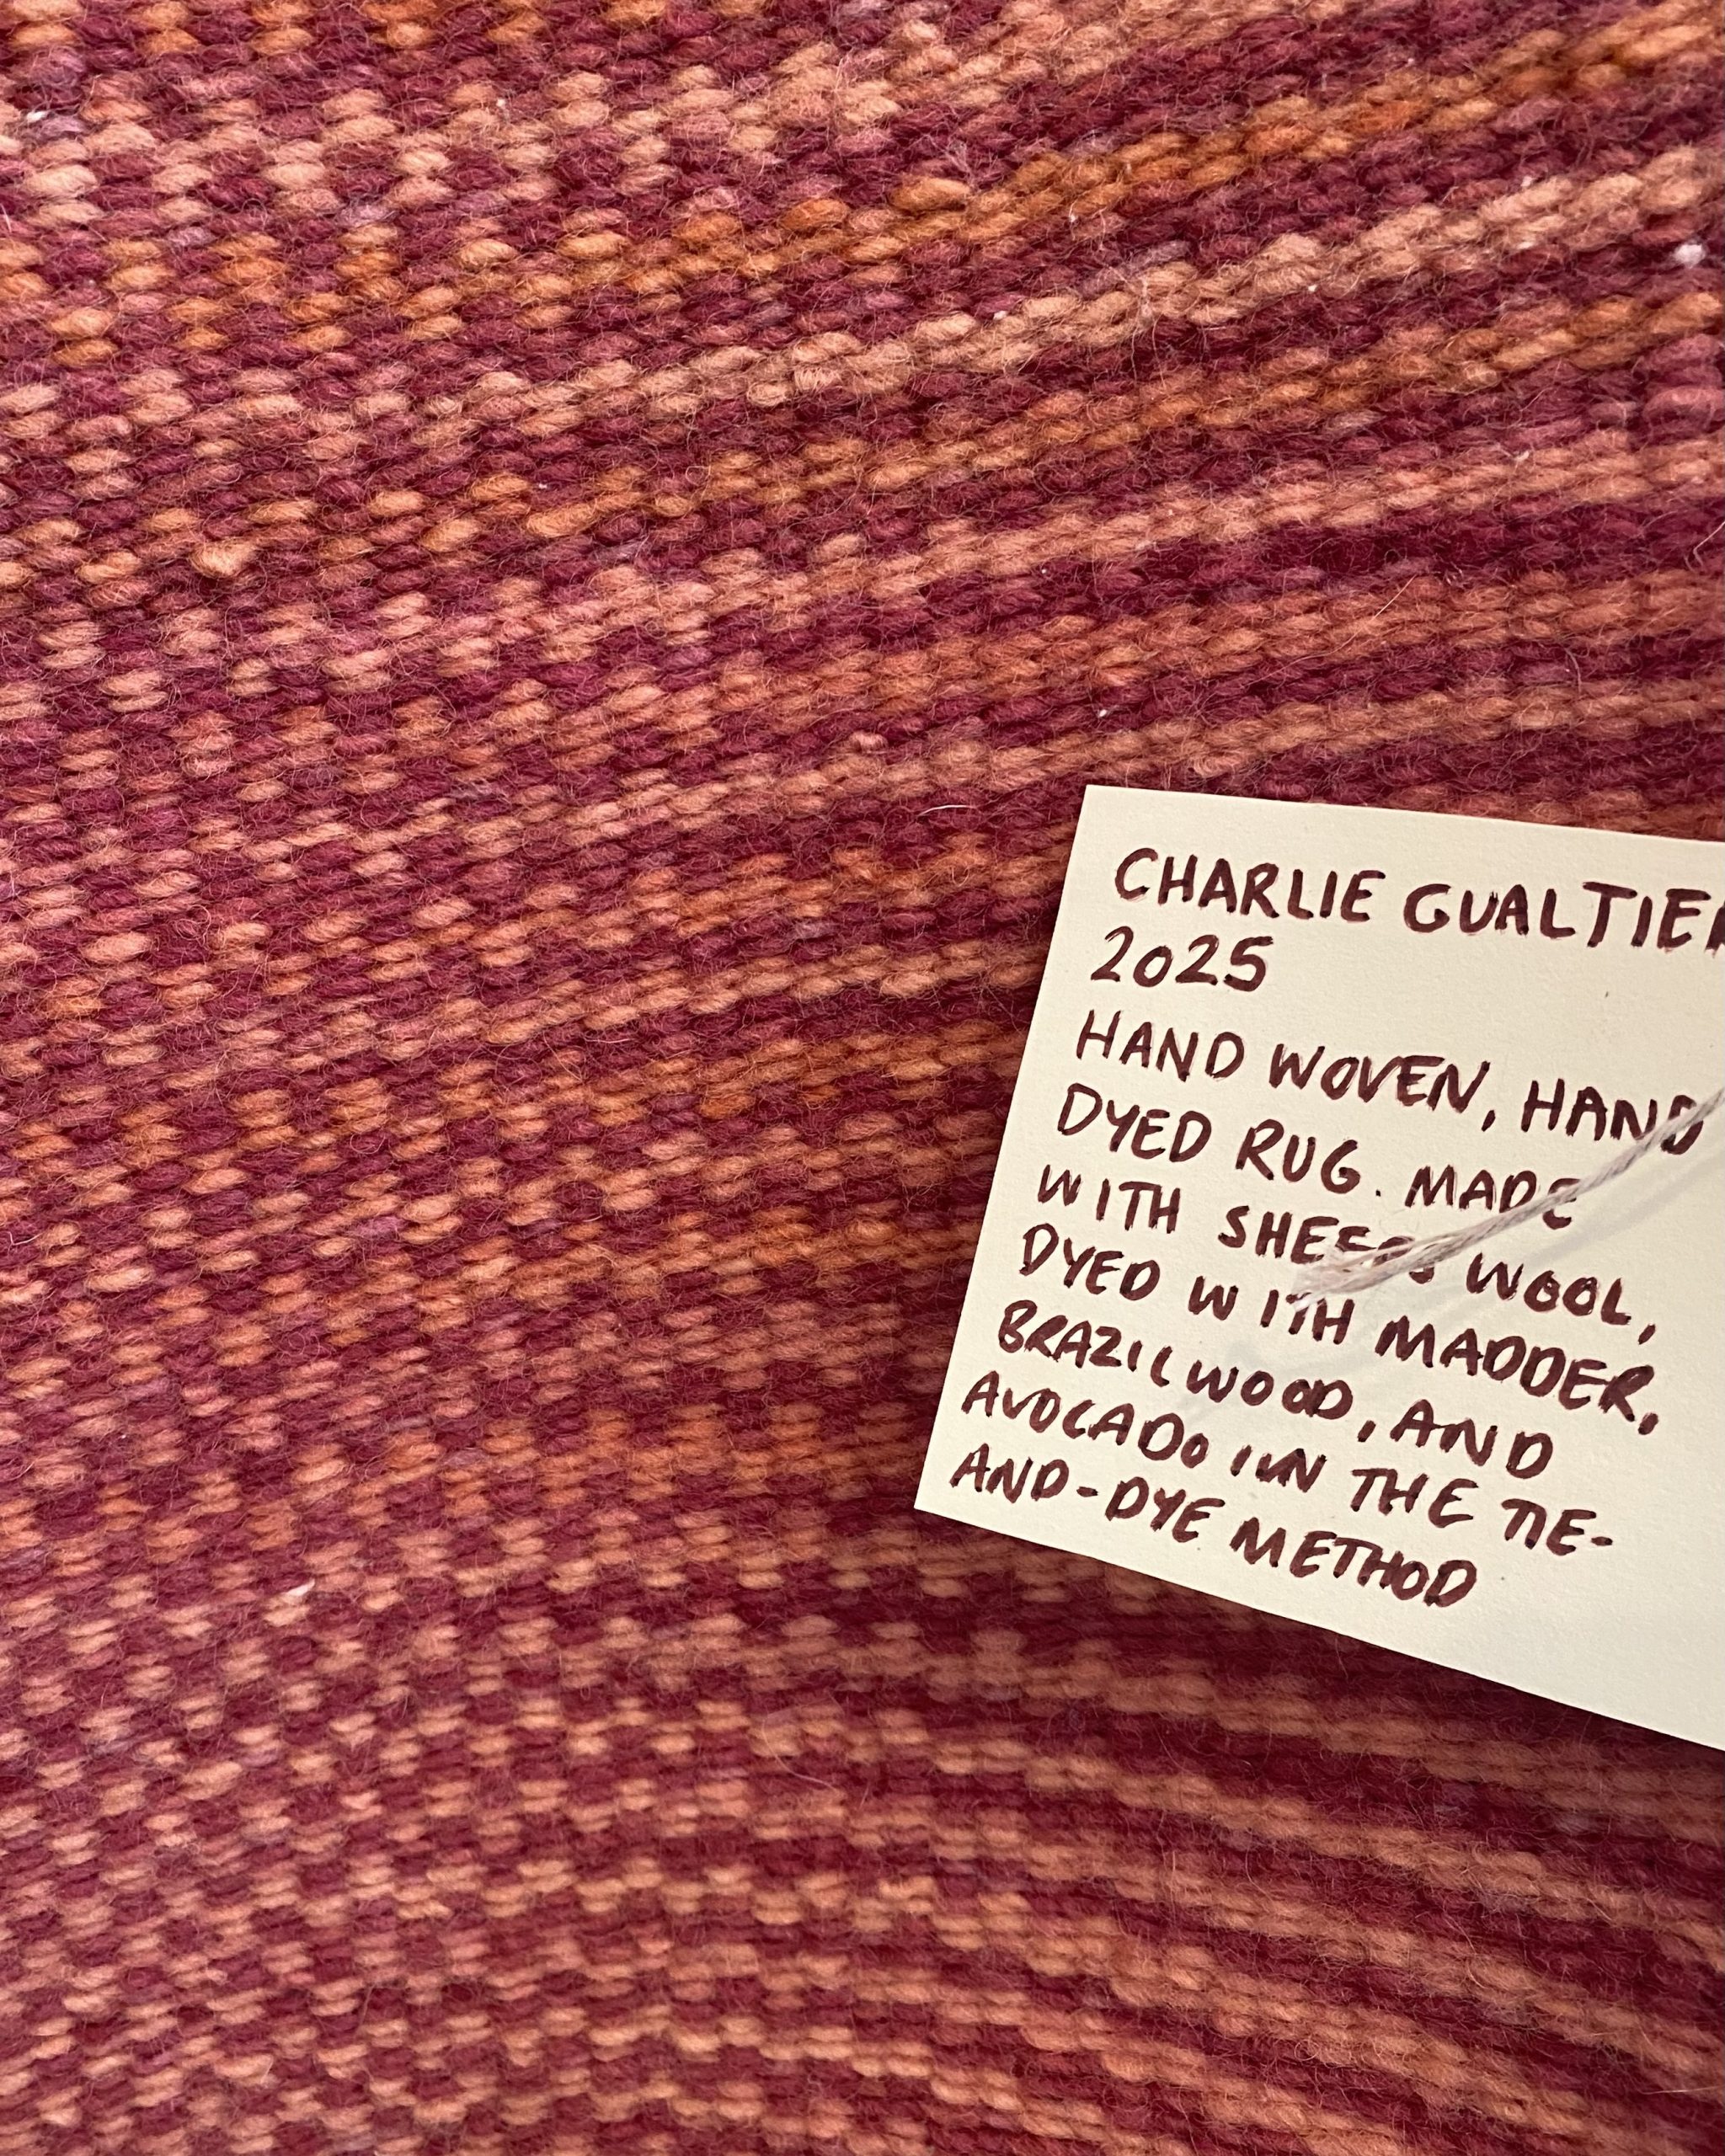 CHARLIE GUALTIER
2025
HAND WOVEN, HAND
DYED RUG. MADE
WITH WOOL,
DYED WITH MADDER,
BRAZILWOOD, AND
AVOCADO IN THE TIE-
AND-DYE METHOD